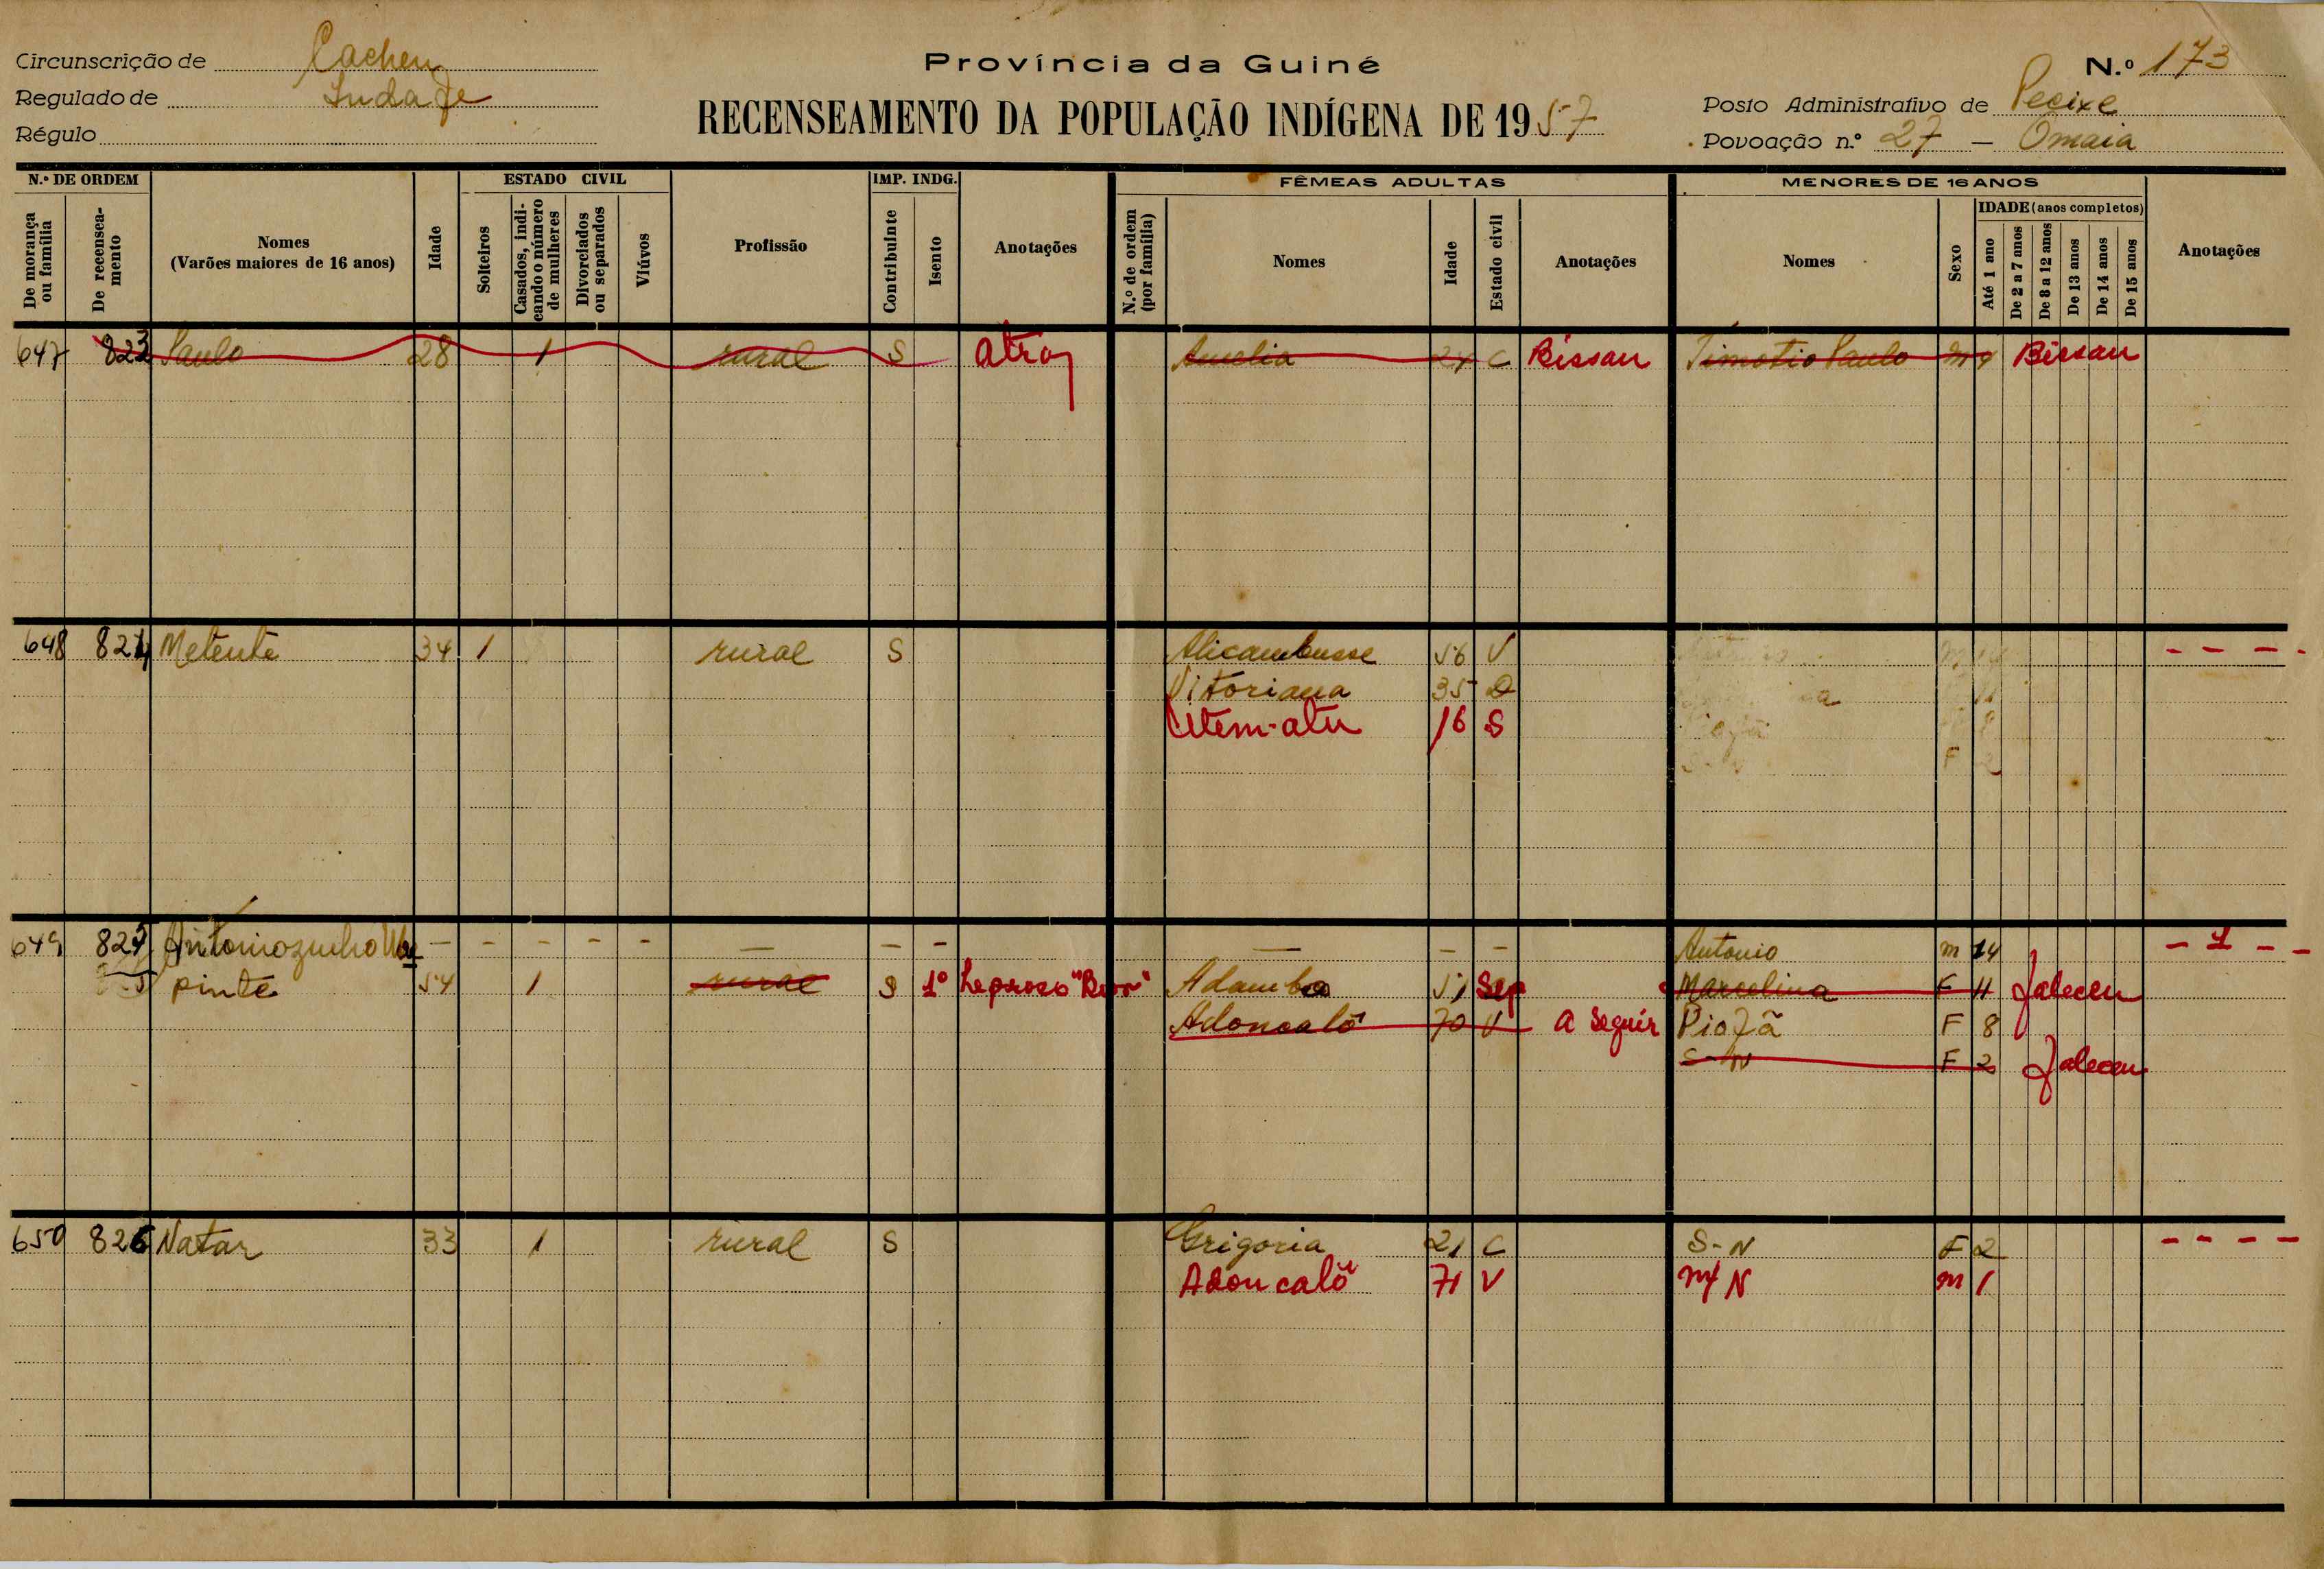 Circunscrição de Cacheu
Regulado de Indafe
Régulo
Província da Guiné
RECENSEAMENTO DA POPULAÇÃO INDÍGENA DE 1957
N.º 173
Posto Administrativo de Pecixe
Povoação n.º 27 - Omaia
N.º DE ORDEM
De morança ou família
De recenseamento
Nomes
(Varões maiores de 16 anos)
Idade
ESTADO CIVIL
Solteiros
Casados, indicando o número de mulheres
Divorciados ou separados
Viúvos
Profissão
IMP. INDG.
Contribuinte
Isento
Anotações
FÊMEAS ADULTAS
N.º de ordem (por família)
Nomes
Idade
Estado civil
Anotações
MENORES DE 16 ANOS
Nomes
Sexo
IDADE (anos completos)
Até 1 ano
De 2 a 7 anos
De 8 a 12 anos
De 13 anos
De 14 anos
De 15 anos
Anotações
647 823 Paulo 28 1 rural S atraz Amelia C Bissau Timotio Paulo m Bissau
648 824 Metente 34 1 rural S Alicambusse 56 V - - - -
Vitoriana 35 D
Utem-atu 16 S
F 2
649 825 Antoniozinho - - - - - - - - - - - Antonio m 14 - 1 - -
Pinte 54 1 rural S 1º Leproso Adamba 51 Sep Marcelina F 11 faleceu
Adoncalô 70 V a seguir Piofã F 8
S-N F 2 faleceu
650 826 Natar 33 1 rural S Grigoria 21 C S-N F 2 - - - -
Adoncalô 71 V N m 1